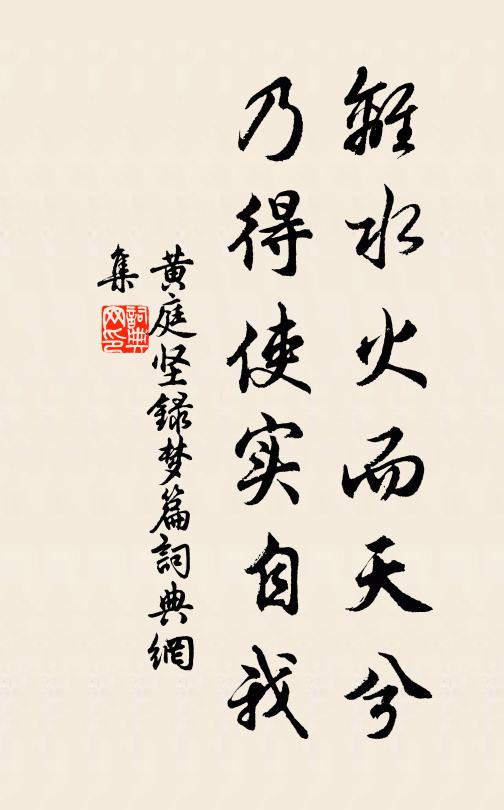 離水火而天兮
乃得使实自我
黄庭坚録梦篇詞典網
集
詞典
网印